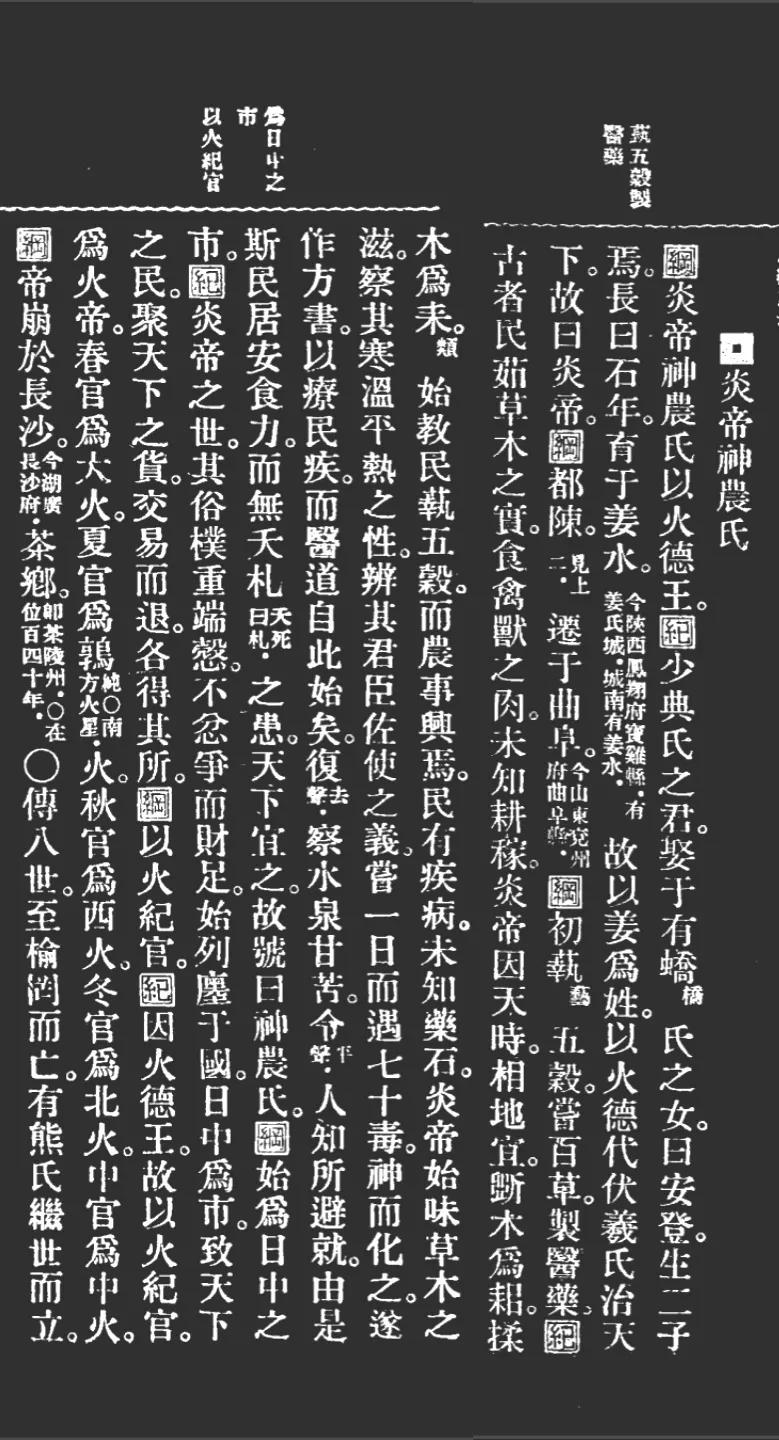 蓺五穀製
醫藥
炎帝神農氏
綱炎帝神農氏以火德王。紀少典氏之君。娶于有蟜橋氏之女。曰安登。生二子
焉。長曰石年。育于姜水。今陝西鳳翔府寶雞縣。有姜氏城。城南有姜水。故以姜爲姓。以火德代伏羲氏治天
下。故曰炎帝。綱都陳。見上二。遷于曲阜。今山東兗州府曲阜縣。綱初蓺藝五穀。嘗百草。製醫藥。紀
古者民茹草木之實。食禽獸之肉。未知耕稼。炎帝因天時。相地宜。斲木爲耜。揉
爲日中之
市
以火紀官
木爲耒。類始教民蓺五穀。而農事興焉。民有疾病。未知藥石。炎帝始味草木之
滋。察其寒溫平熱之性。辨其君臣佐使之義。嘗一日而遇七十毒。神而化之。遂
作方書。以療民疾。而醫道自此始矣。復去聲。察水泉甘苦。令平聲。人知所避就。由是
斯民居安食力。而無夭札夭死曰札。之患。天下宜之。故號曰神農氏。綱始爲日中之
市。紀炎帝之世。其俗樸重端愨。不忿爭而財足。始列廛于國。日中爲市。致天下
之民。聚天下之貨。交易而退。各得其所。綱以火紀官。紀因火德王。故以火紀官。
爲火帝。春官爲大火。夏官爲鶉純○南方火星。火。秋官爲西火。冬官爲北火。中官爲中火。
綱帝崩於長沙。今湖廣長沙府。茶鄉。卽茶陵州。○在位百四十年。○傳八世。至榆罔而亡。有熊氏繼世而立。